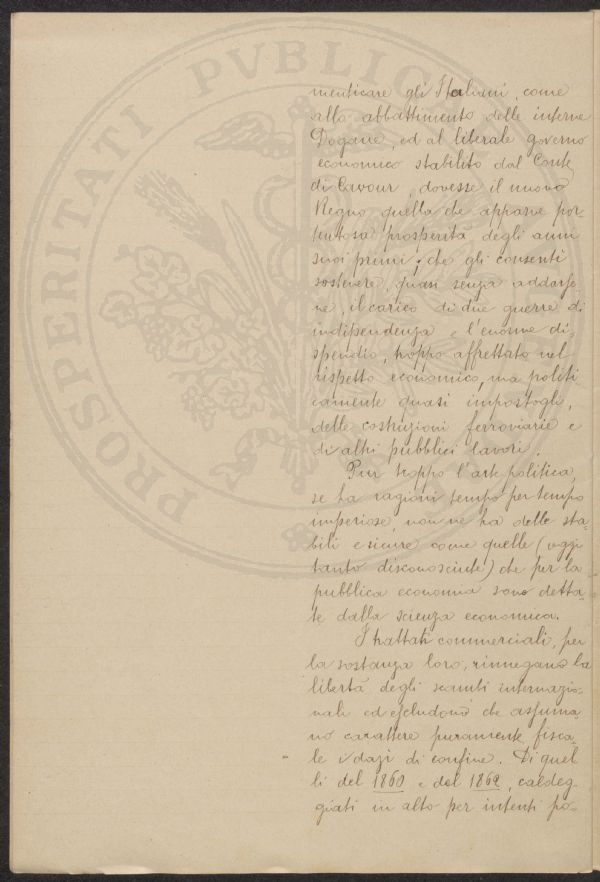 PROSPERITATI PVBLIC
menticare gli Italiani, come
allo abbattimento delle interne
Dogane, ed al liberale governo
economico stabilito dal Conte
di Cavour, dovesse il nuovo
Regno quella che apparve por
tentosa prosperità degli anni
suoi primi; che gli consentì
sostenere, quasi senza addarse
ne, il carico di due guerre di
indipendenza e l'enorme di-
spendio, troppo affrettato nel
rispetto economico, ma politi
camente quasi impostogli,
delle costruzioni ferroviarie e
di altri pubblici lavori.
Pur troppo l'arte politica,
se ha ragioni tempo per tempo
imperiose, non ne ha delle sta-
bili e sicure come quelle (oggi
tanto disconosciute) che per la
pubblica economia sono detta-
te dalla scienza economica.
I trattati commerciali, per
la sostanza loro, rinnegano la
libertà degli scambi internazio-
nali ed escludono che assuma-
no carattere puramente fisca-
le i dazi di confine. Di quel
li del 1860 e del 1862, caldeg-
giati in alto per intenti po-